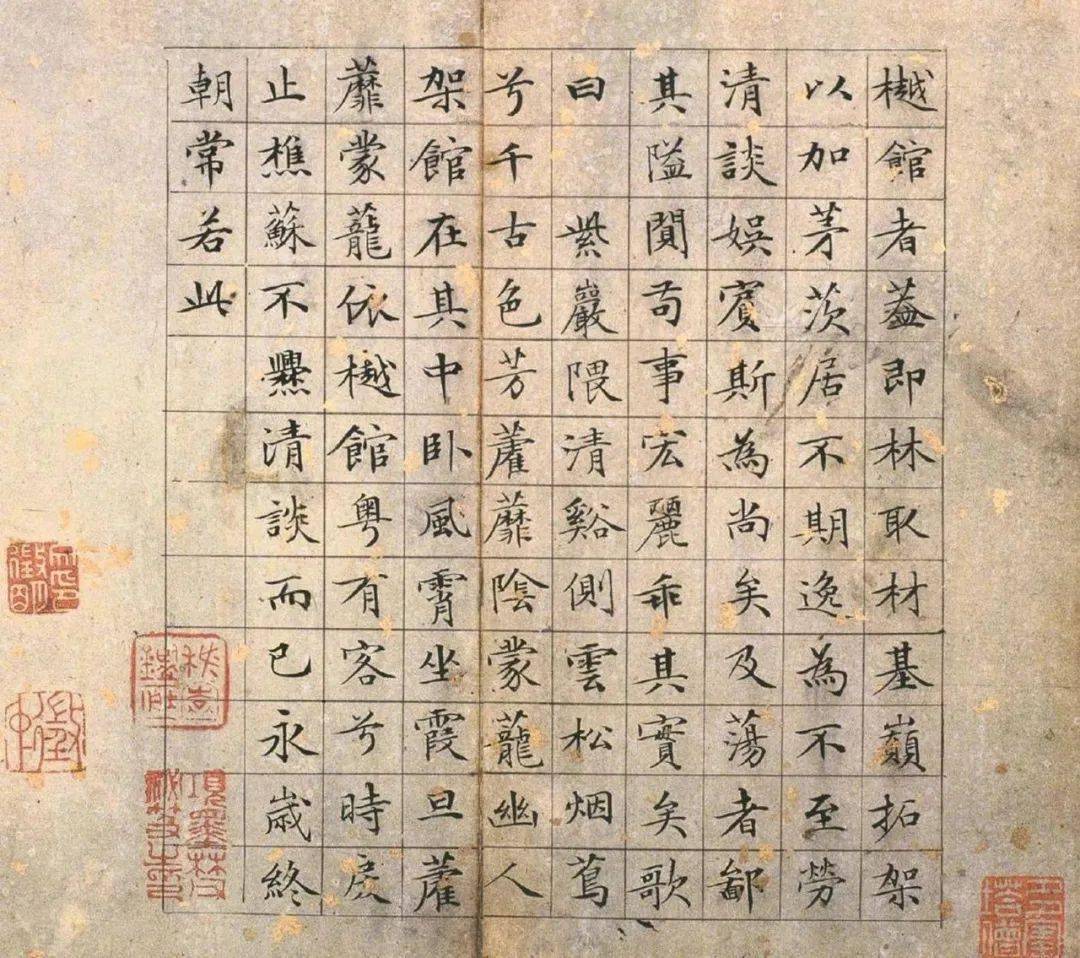 樾館者葢即林取材基巔拓架
以加茅茨居不期逸為不至勞
清談娛賓斯為尚矣及蕩者鄙
其隘闃苟事宏麗乖其實矣歌
曰 紫巖隈清谿側雲松烟蔦
兮千古色芳藿蘼陰蒙蘢幽人
架館在其中卧風霄坐霞旦藿
蘼蒙蘢依樾館粵有客兮時戾
止樵蘇不爨清談而已永歲終
朝常若此